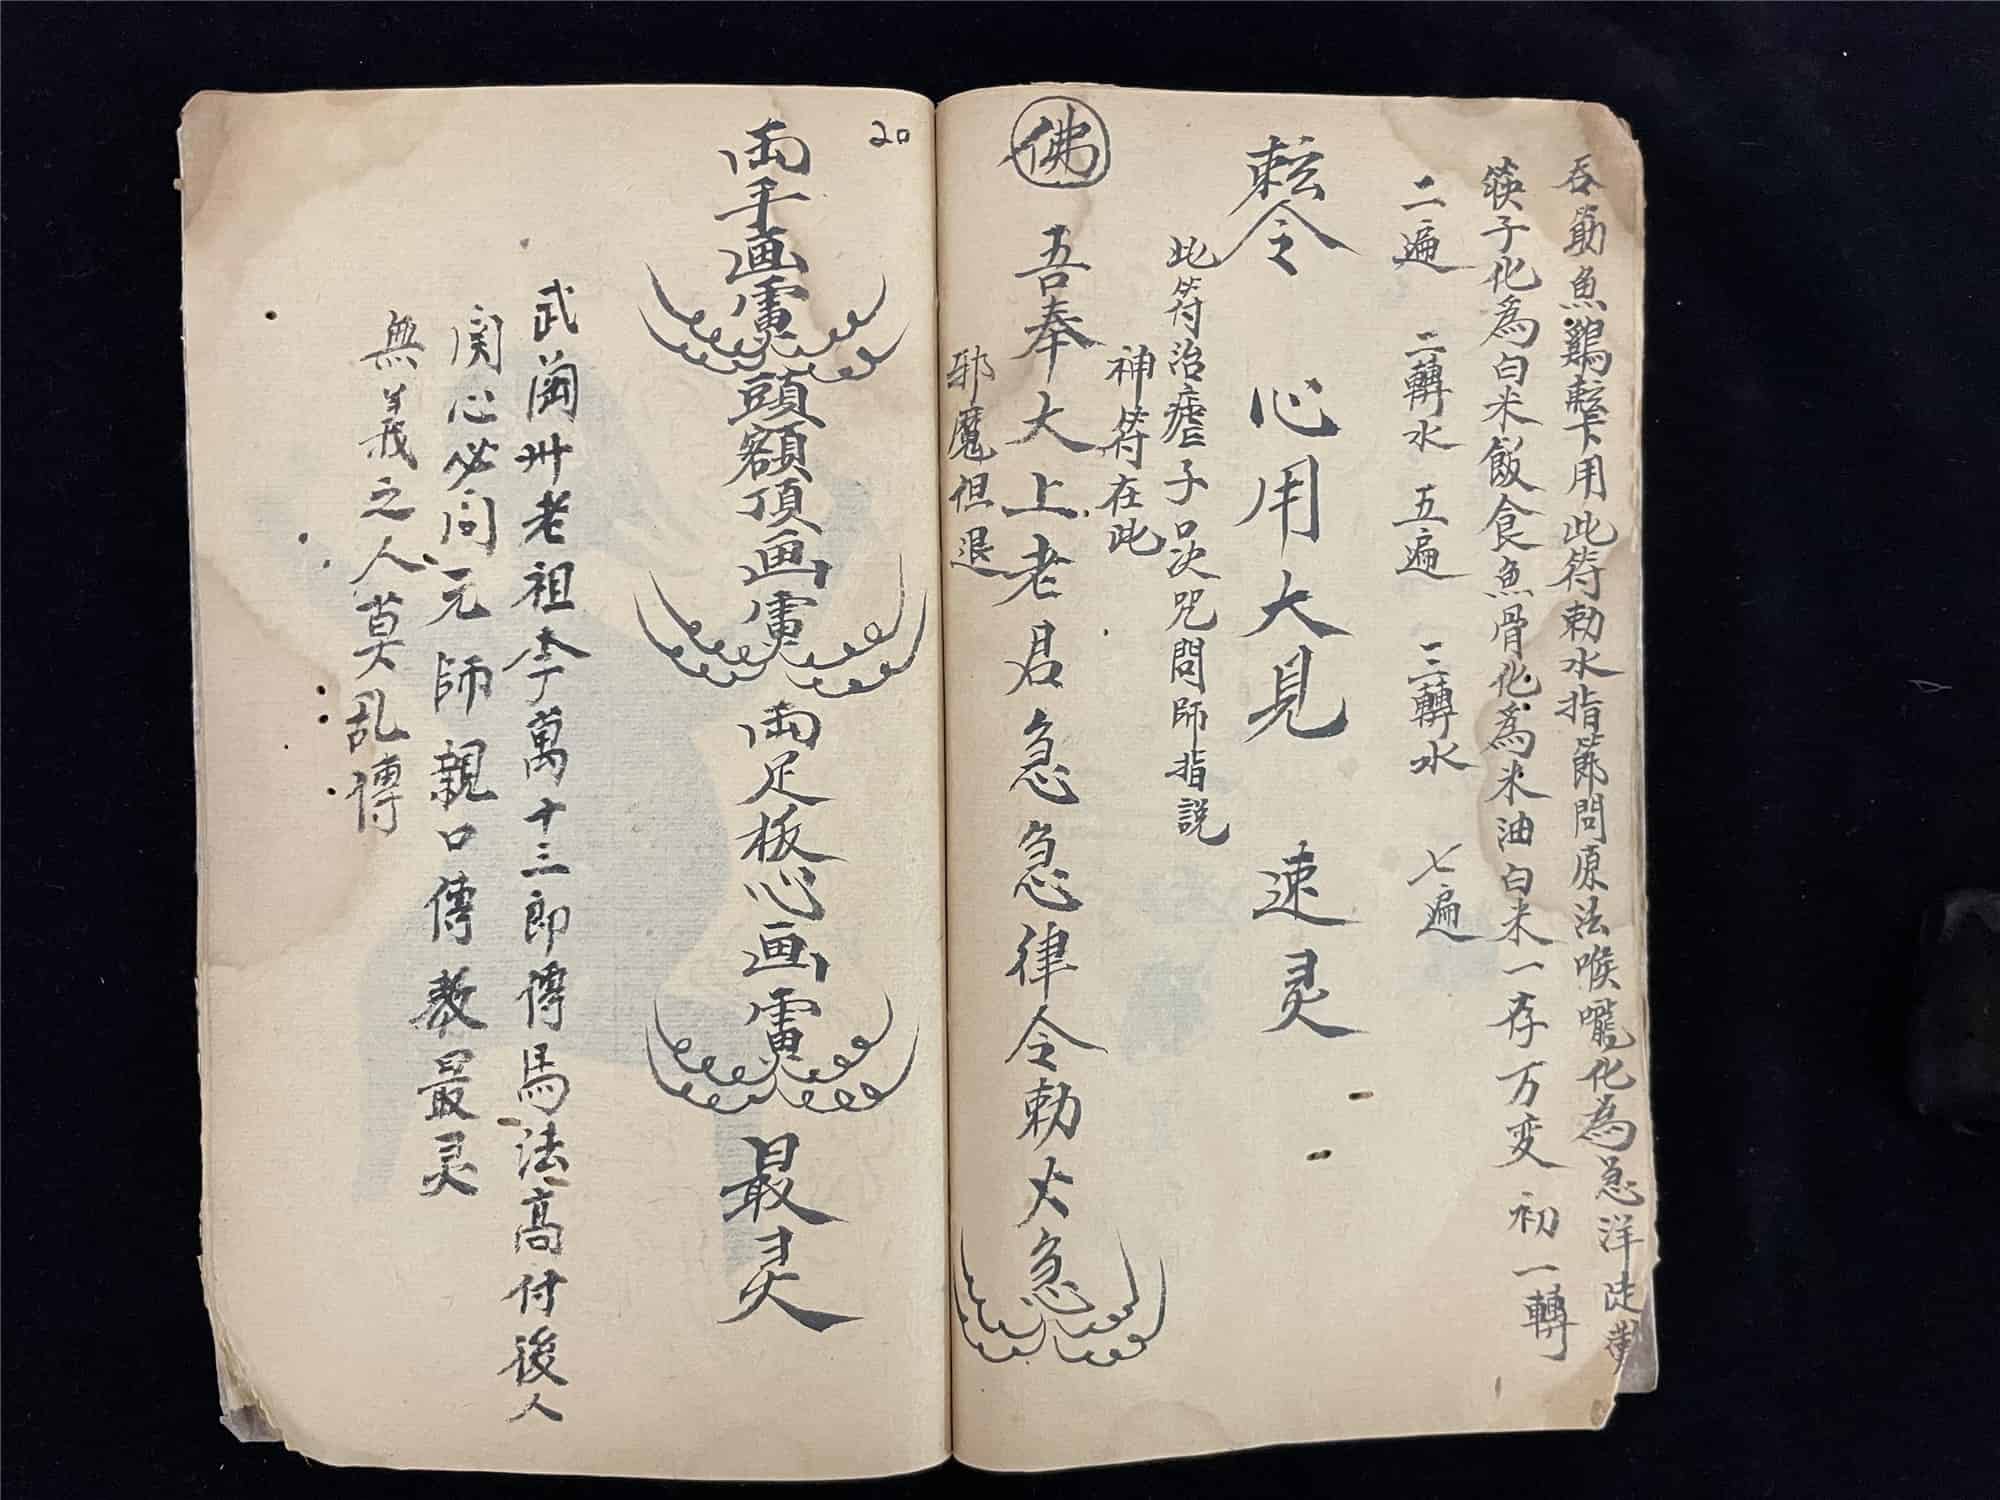 吞筯魚鷄䡛下用此符勅水指節問原法喉嚨化為急洋陡
筷子化為白米飯食魚骨化為米油白米一存万变 初一轉
二遍 二轉水 五遍 三轉水 七遍
令 心用大見 速灵
此符治瘧子口次咒問師指説
神符在此
佛 吾奉大上老君急急律令勅火急
邪魔但退
20
両手画雷 頭額頂画雷 両足板心画雷 最灵
武岡卅老祖李萬十三郎傳馬法高付後人
関心必问元師親口傳教最灵
無義之人莫乱傳